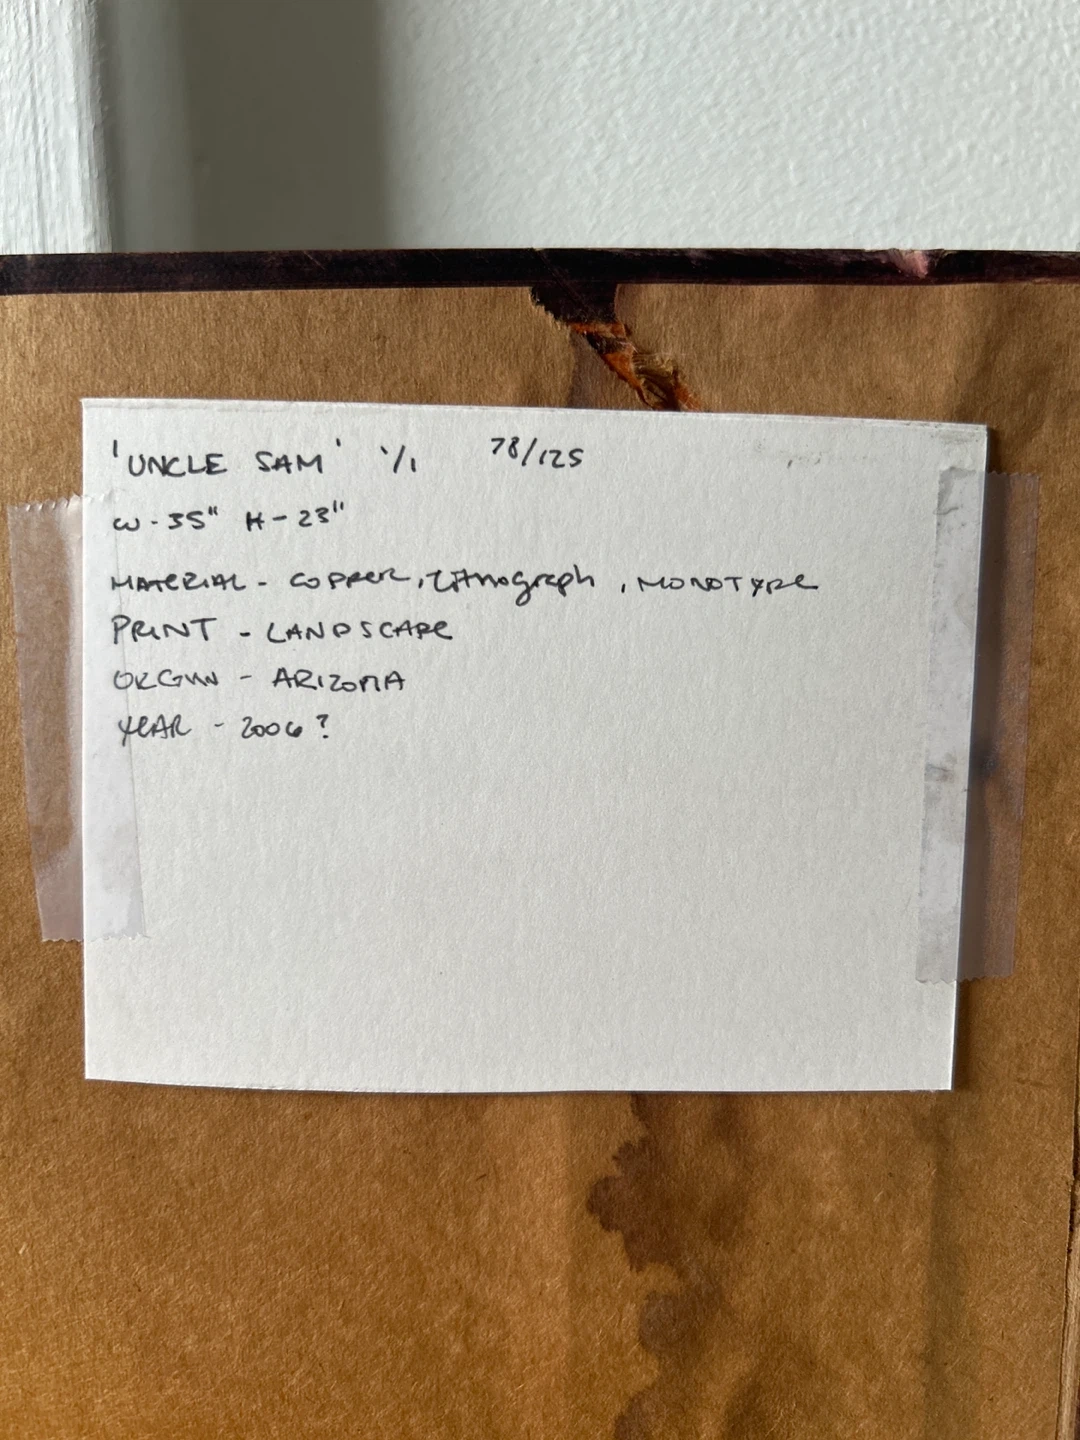 'UNCLE SAM' 1/1 78/125
W - 35" H - 23"
MATERIAL - COPPER, Lithograph, MONOTYPE
PRINT - LANDSCAPE
ORGIN - ARIZONA
YEAR - 2006?